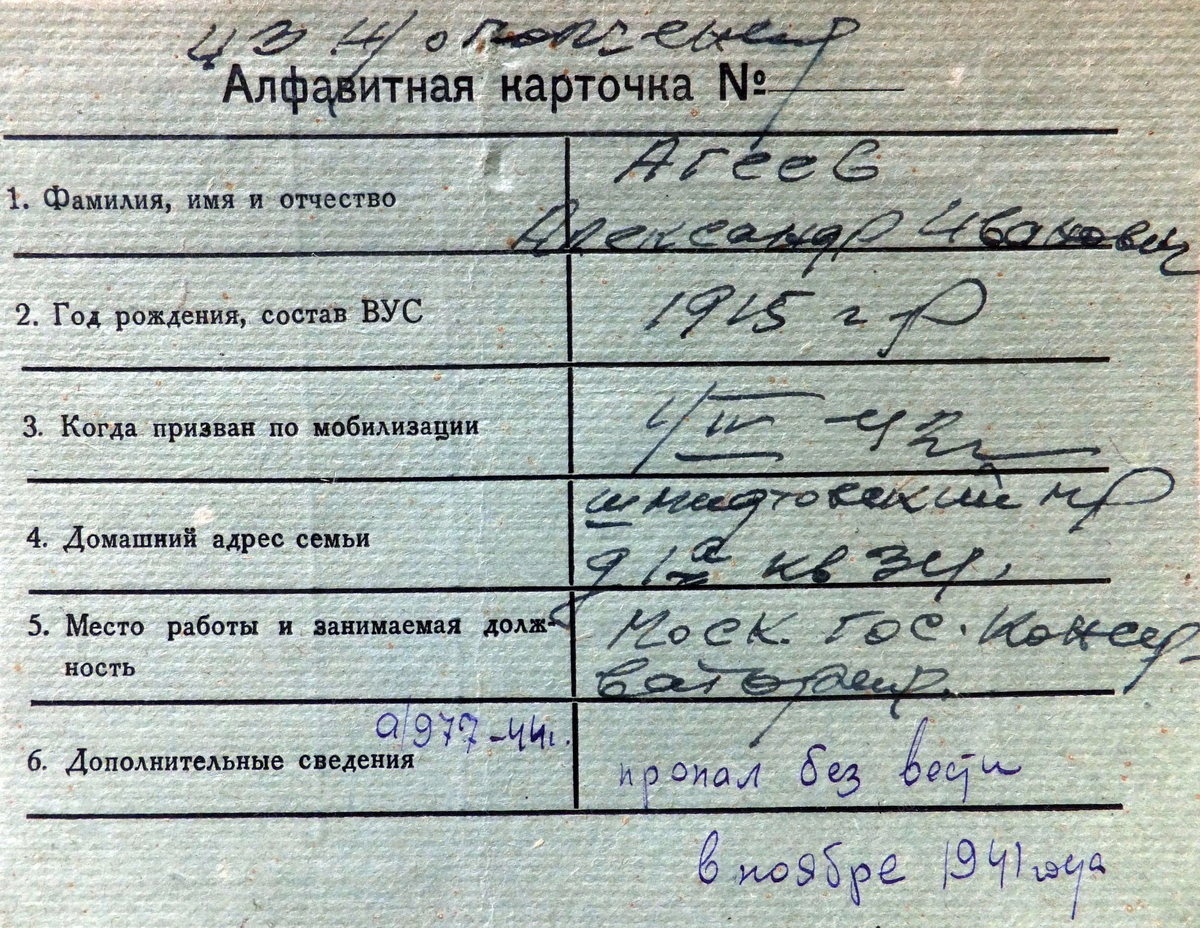 из н/ополчения
Алфавитная карточка №
1. Фамилия, имя и отчество
Агеев
Александр Иванович
2. Год рождения, состав ВУС
1915 г р
3. Когда призван по мобилизации
42г
4. Домашний адрес семьи
Шмидтовский пр
д 1а кв 34.
5. Место работы и занимаемая долж-
ность
Моск. Гос. Консер-
ватория.
а/977-44г.
6. Дополнительные сведения
пропал без вести
в ноябре 1941 года